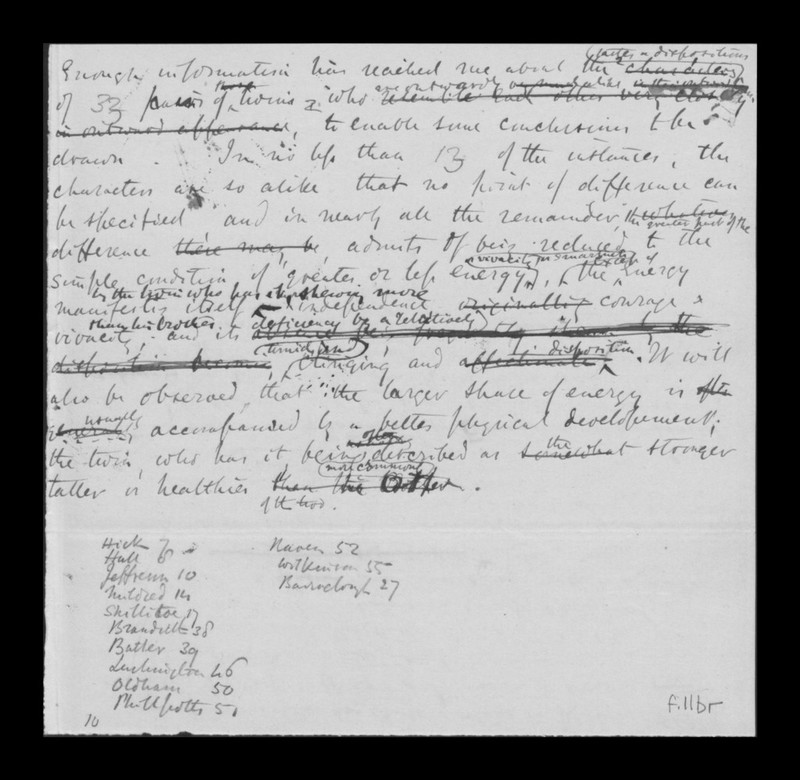 tastes & dispositions
Enough information has reached me about the characters
of 32 pairs of twins who resemble each other very closely
in outward appearance, to enable some conclusions to be
drawn. In no less than 13 of the instances, the
characters are so alike that no point of difference can
be specified and in nearly all the remainder, the greater part of the
difference there may be, admits of being reduced to the
simple condition of greater or less energy, the energy
by the twin who has it, shewing more
manifests itself independence originality courage &
than his brother deficiency by a relatively
vivacity and its
disposition becomes, timid, and clinging and affectionate disposition. It will
also be observed, that the larger share of energy is often
generally usually accompanied by a better physical developement;
the twin, who has it, being often described as somewhat the stronger
taller or healthier than the other.
more common
of the two.
Hick 7
Hull 6
Jeffreson 10
Mildred 14
Shillitoe 17
Brandreth 38
Butler 39
Lushington 46
Oldham 50
Phillpotts 51
10
Haven 52
Wilkinson 55
Barraclough 27
f.11br